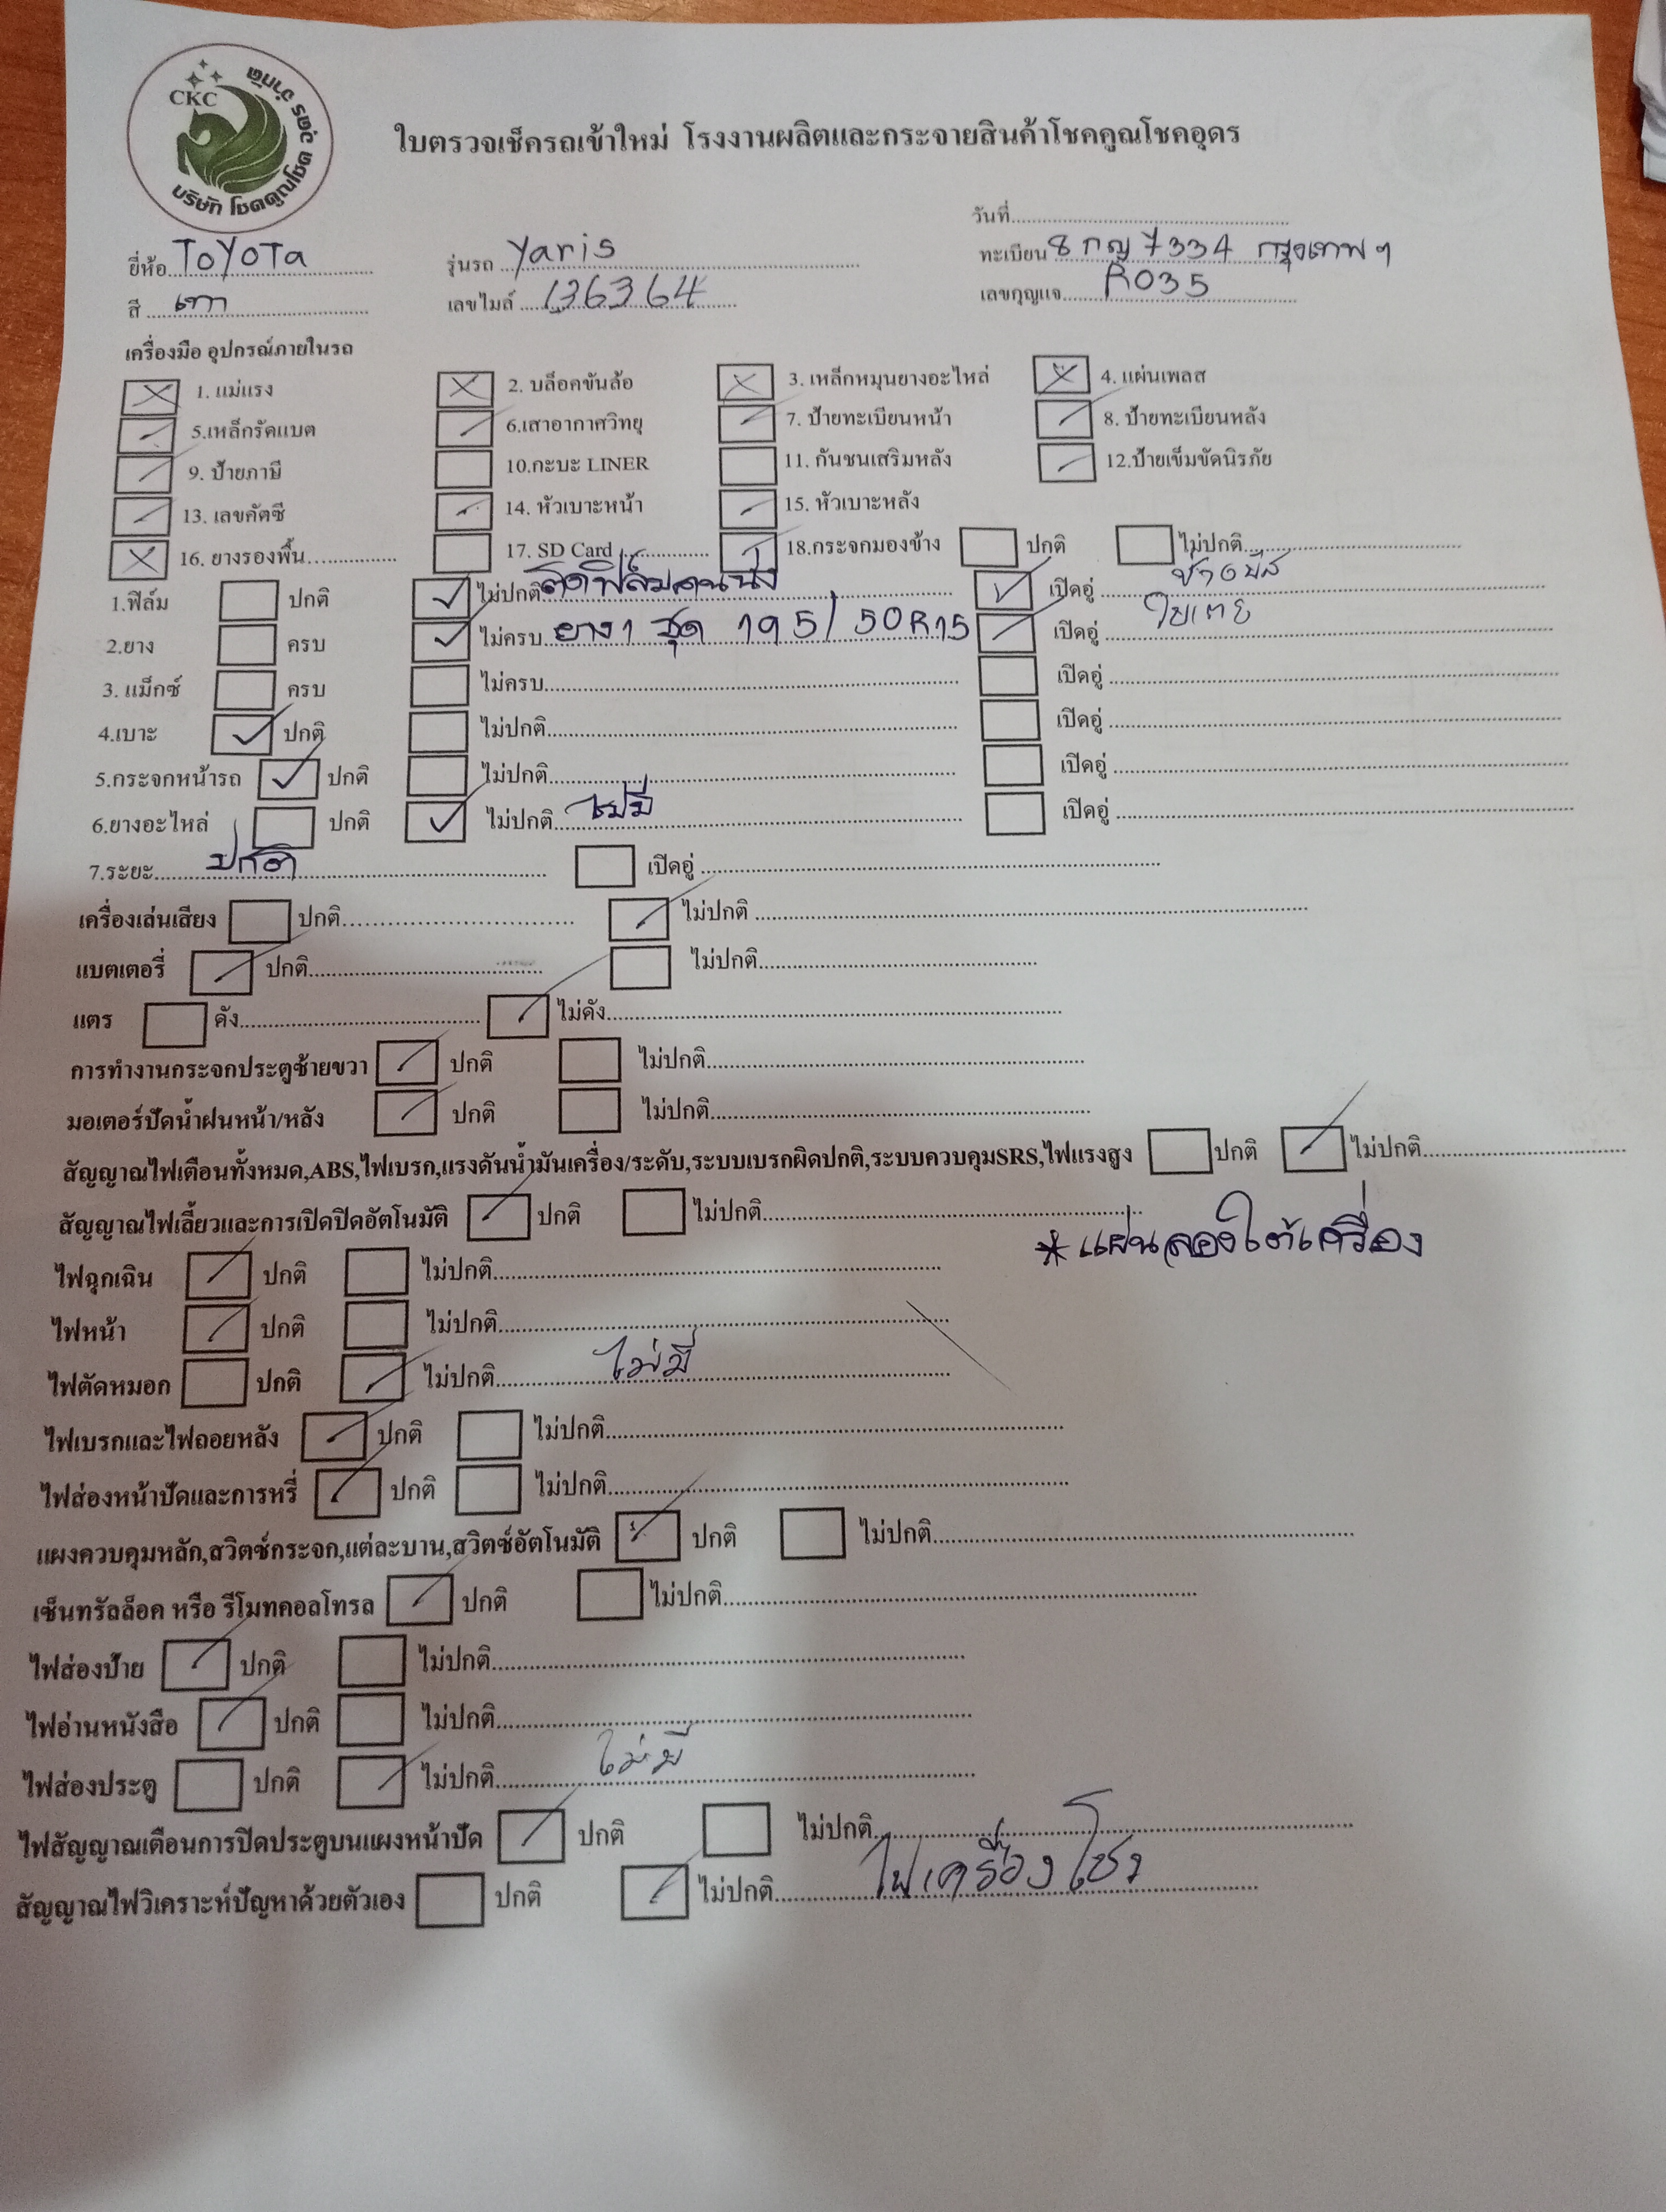 CKC
บริษัท โชคคูณโชค ตวัด จำกัด
ใบตรวจเช็ครถเข้าใหม่ โรงงานผลิตและกระจายสินค้าโชคคูณโชคอุดร
วันที่
ยี่ห้อ ToYoTa รุ่นรถ Yaris ทะเบียน 8 กญ 7334 กรุงเทพฯ
สี เทา เลขไมล์ 136364 เลขกุญแจ R035
เครื่องมือ อุปกรณ์ภายในรถ
1. แม่แรง 2. บล็อคขันล้อ 3. เหล็กหมุนยางอะไหล่ 4. แผ่นเพลส
5.เหล็กรัดแบต 6.เสาอากาศวิทยุ 7. ป้ายทะเบียนหน้า 8. ป้ายทะเบียนหลัง
9. ป้ายภาษี 10.กะบะ LINER 11. กันชนเสริมหลัง 12.ป้ายเข็มขัดนิรภัย
13. เลขคัตซี 14. หัวเบาะหน้า 15. หัวเบาะหลัง
16. ยางรองพื้น 17. SD Card 18.กระจกมองข้าง ปกติ ไม่ปกติ
1.ฟิล์ม ปกติ ไม่ปกติ ติดฟิล์มคนนั่ง เปิดอู่
2.ยาง ครบ ไม่ครบ ยาง 1 ชุด 195/50R15 เปิดอู่ ใบเตย
3. แม็กซ์ ครบ ไม่ครบ เปิดอู่
4.เบาะ ปกติ ไม่ปกติ เปิดอู่
5.กระจกหน้ารถ ปกติ ไม่ปกติ เปิดอู่
6.ยางอะไหล่ ปกติ ไม่ปกติ ไม่มี เปิดอู่
7.ระยะ ปกติ เปิดอู่
เครื่องเล่นเสียง ปกติ ไม่ปกติ
แบตเตอรี่ ปกติ ไม่ปกติ
แตร ดัง ไม่ดัง
การทำงานกระจกประตูซ้ายขวา ปกติ ไม่ปกติ
มอเตอร์ปัดน้ำฝนหน้า/หลัง ปกติ ไม่ปกติ
สัญญาณไฟเตือนทั้งหมด,ABS,ไฟเบรก,แรงดันน้ำมันเครื่อง/ระดับ,ระบบเบรกผิดปกติ,ระบบควบคุมSRS,ไฟแรงสูง ปกติ ไม่ปกติ
สัญญาณไฟเลี้ยวและการเปิดปิดอัตโนมัติ ปกติ ไม่ปกติ
* แผ่นลองใต้เครื่อง
ไฟฉุกเฉิน ปกติ ไม่ปกติ
ไฟหน้า ปกติ ไม่ปกติ
ไฟตัดหมอก ปกติ ไม่ปกติ ไม่มี
ไฟเบรกและไฟถอยหลัง ปกติ ไม่ปกติ
ไฟส่องหน้าปัดและการหรี่ ปกติ ไม่ปกติ
แผงควบคุมหลัก,สวิตช์กระจก,แต่ละบาน,สวิตซ์อัตโนมัติ ปกติ ไม่ปกติ
เซ็นทรัลล็อค หรือ รีโมทคอลโทรล ปกติ ไม่ปกติ
ไฟส่องป้าย ปกติ ไม่ปกติ
ไฟอ่านหนังสือ ปกติ ไม่ปกติ
ไฟส่องประตู ปกติ ไม่ปกติ ไม่มี
ไฟสัญญาณเตือนการปิดประตูบนแผงหน้าปัด ปกติ ไม่ปกติ
สัญญาณไฟวิเคราะห์ปัญหาด้วยตัวเอง ปกติ ไม่ปกติ ไฟเครื่องโชว์